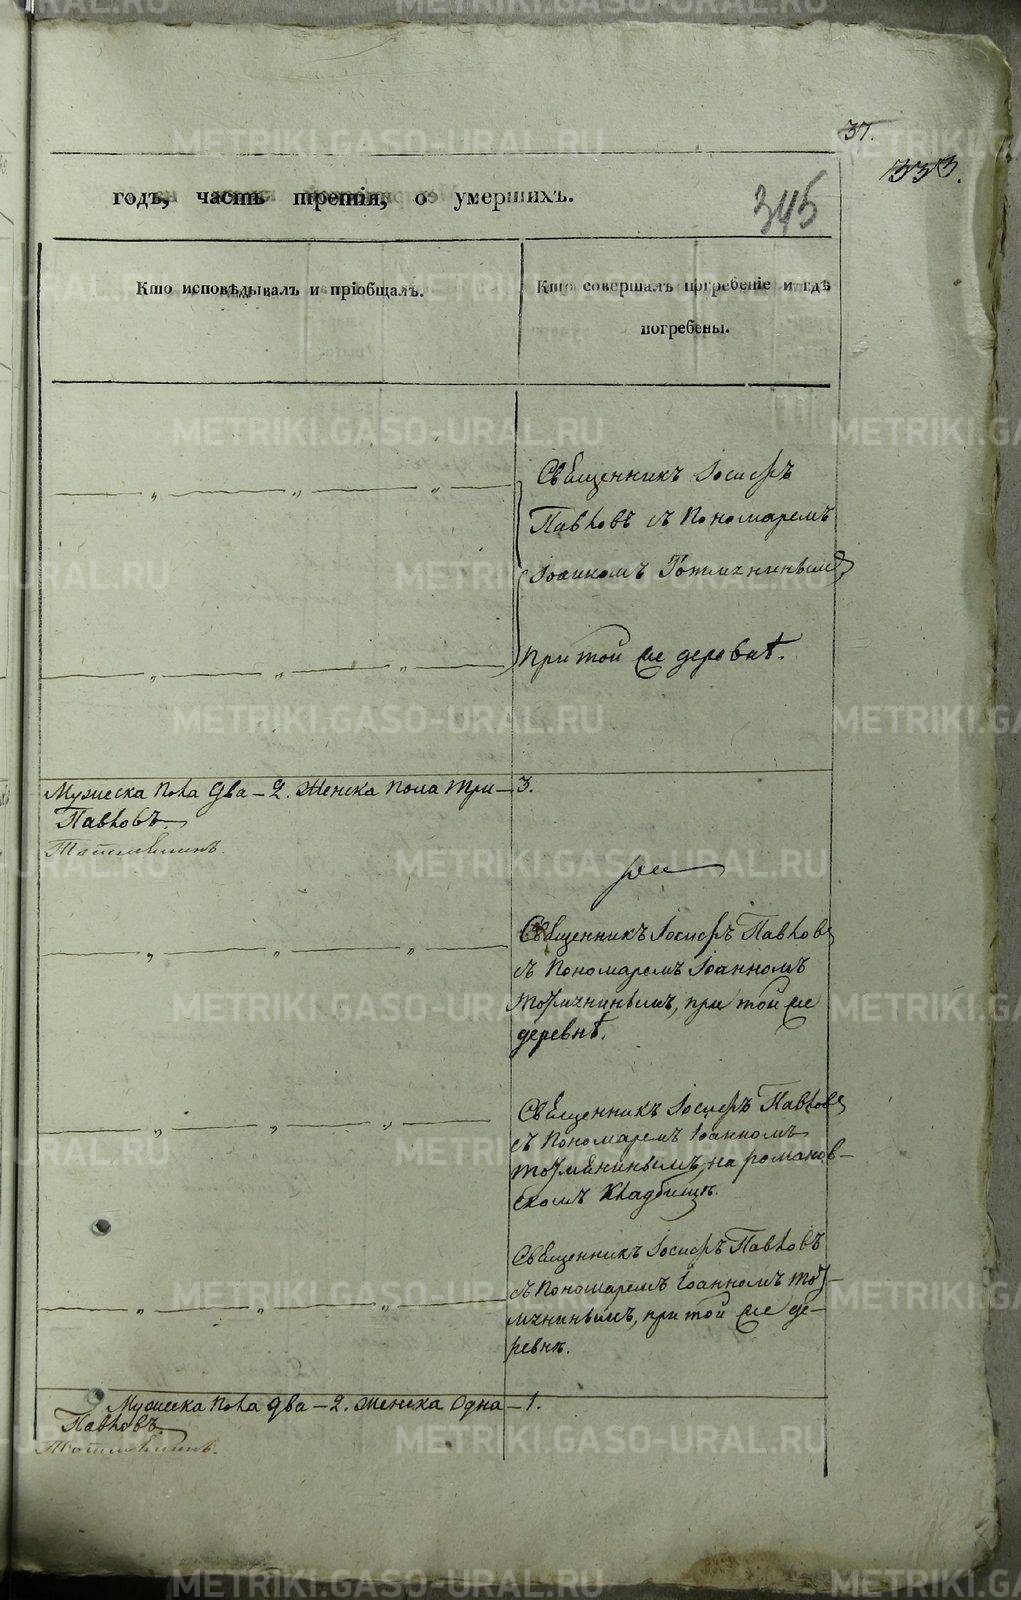 37.
333.
345
годъ, часть третія, о умершихъ.
Кто исповѣдывалъ и пріобщалъ.
Кто совершалъ погребеніе и гдѣ
погребены.
Священникъ Іосифъ
Павловъ съ Пономаремъ
Іоанномъ
при той же деревнѣ.
Мужеска пола два – 2. Женска пола три – 3.
Павловъ
Священникъ Іосифъ Павловъ
съ Пономаремъ Іоанномъ
при той же
деревнѣ.
Священникъ Іосифъ Павловъ
съ Пономаремъ Іоанномъ
на романов–
скомъ кладбищѣ.
Священникъ Іосифъ Павловъ
съ Пономаремъ Іоанномъ
при той же де–
ревнѣ.
Мужеска пола два – 2. Женска одна – 1.
Павловъ
METRIKI.GASO-URAL.RU